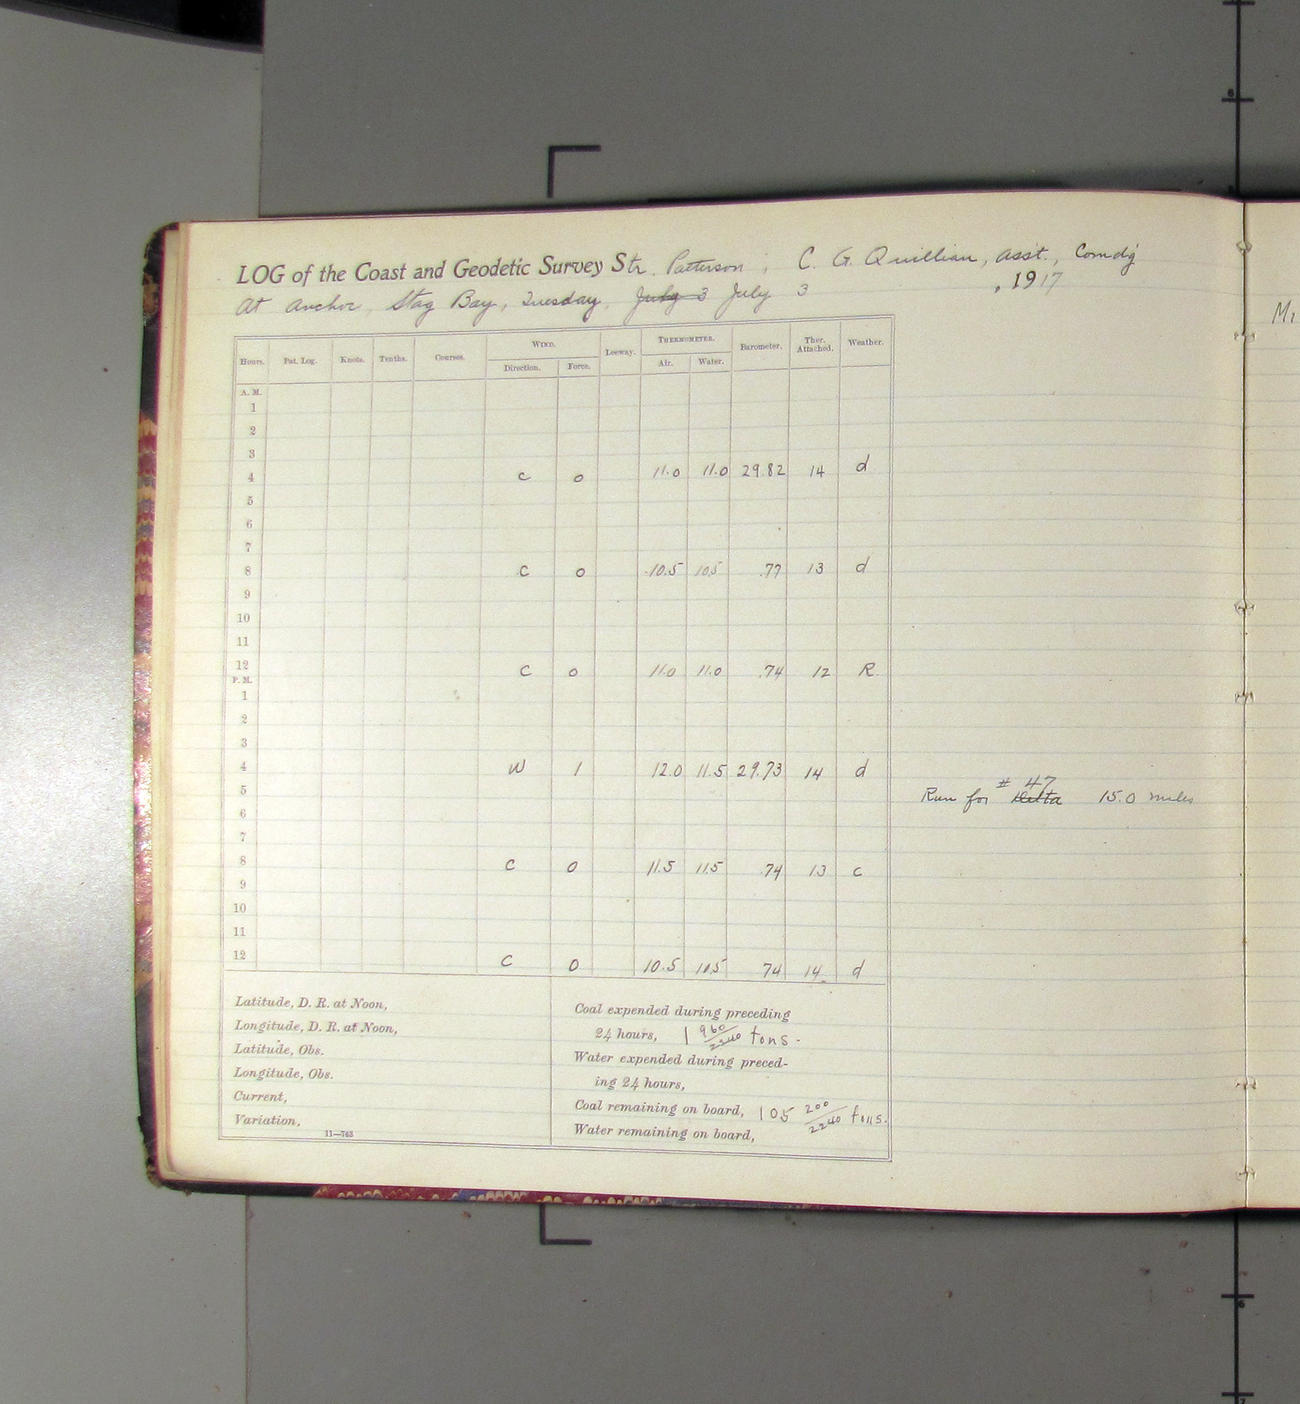 LOG of the Coast and Geodetic Survey Str. Patterson, C. G. Quillian, asst., Comdg
At Anchor, Stag Bay, Tuesday, July 3 July 3, 1917
Hours. Pat. Log. Knots. Tenths. Courses. WIND. Leeway. THERMOMETER. Barometer. Ther. Attached. Weather.
Direction. Force. Air. Water.
A. M.
1
2
3
4 C 0 11.0 11.0 29.82 14 d
5
6
7
8 C 0 10.5 10.5 .77 13 d
9
10
11
12 C 0 11.0 11.0 .74 12 R.
P. M.
1
2
3
4 W 1 12.0 11.5 29.73 14 d
5
Run for Delta # 47 15.0 miles
6
7
8 C 0 11.5 11.5 .74 13 c
9
10
11
12 C 0 10.5 10.5 74 14 d
Latitude, D. R. at Noon,
Longitude, D. R. at Noon,
Latitude, Obs.
Longitude, Obs.
Current,
Variation,
11—763
Coal expended during preceding
24 hours, 1 960/2240 tons.
Water expended during preced-
ing 24 hours,
Coal remaining on board, 105 200/2240 tons.
Water remaining on board,